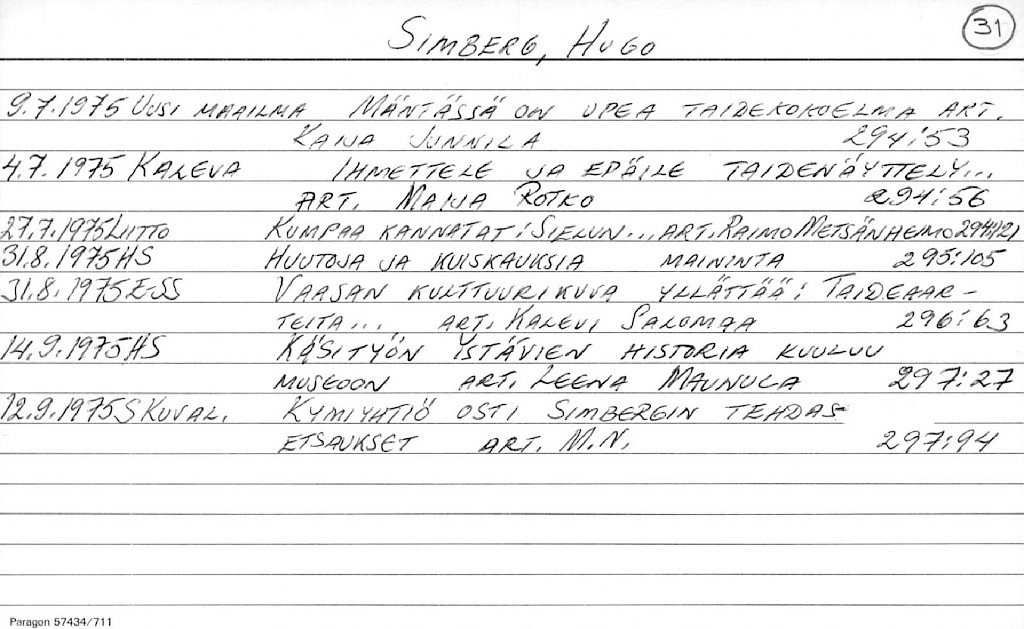 31
SIMBERG, HUGO
9.7.1975 UUSI MAAILMA MÄNTÄSSÄ ON UPEA TAIDEKOKOELMA ART.
KAIJA JUNNILA 294:53
4.7.1975 KALEVA IHMETTELE JA EPÄILE TAIDENÄYTTELY...
ART. MAIJA ROTKO 294:56
27.7.1975 LIITTO KUMPAA KANNATAT: SIELUN... ART. RAIMO METSÄNHEIMO
31.8.1975 HS HUUTOJA JA KUISKAUKSIA MAININTA 295:105
31.8.1975 ESS VAASAN KULTTUURIKUVA YLLÄTTÄÄ: TAIDEAAR-
TEITA... ART. KALEVI SALOMAA 296:63
14.9.1975 HS KÄSITYÖN YSTÄVIEN HISTORIA KUULUU
MUSEOON ART. LEENA MAUNULA 297:27
12.9.1975 SKUVAL. KYMIYHTIÖ OSTI SIMBERGIN TEHDAS-
ETSAUKSET ART. M.N. 297:94
Paragon 57434/711